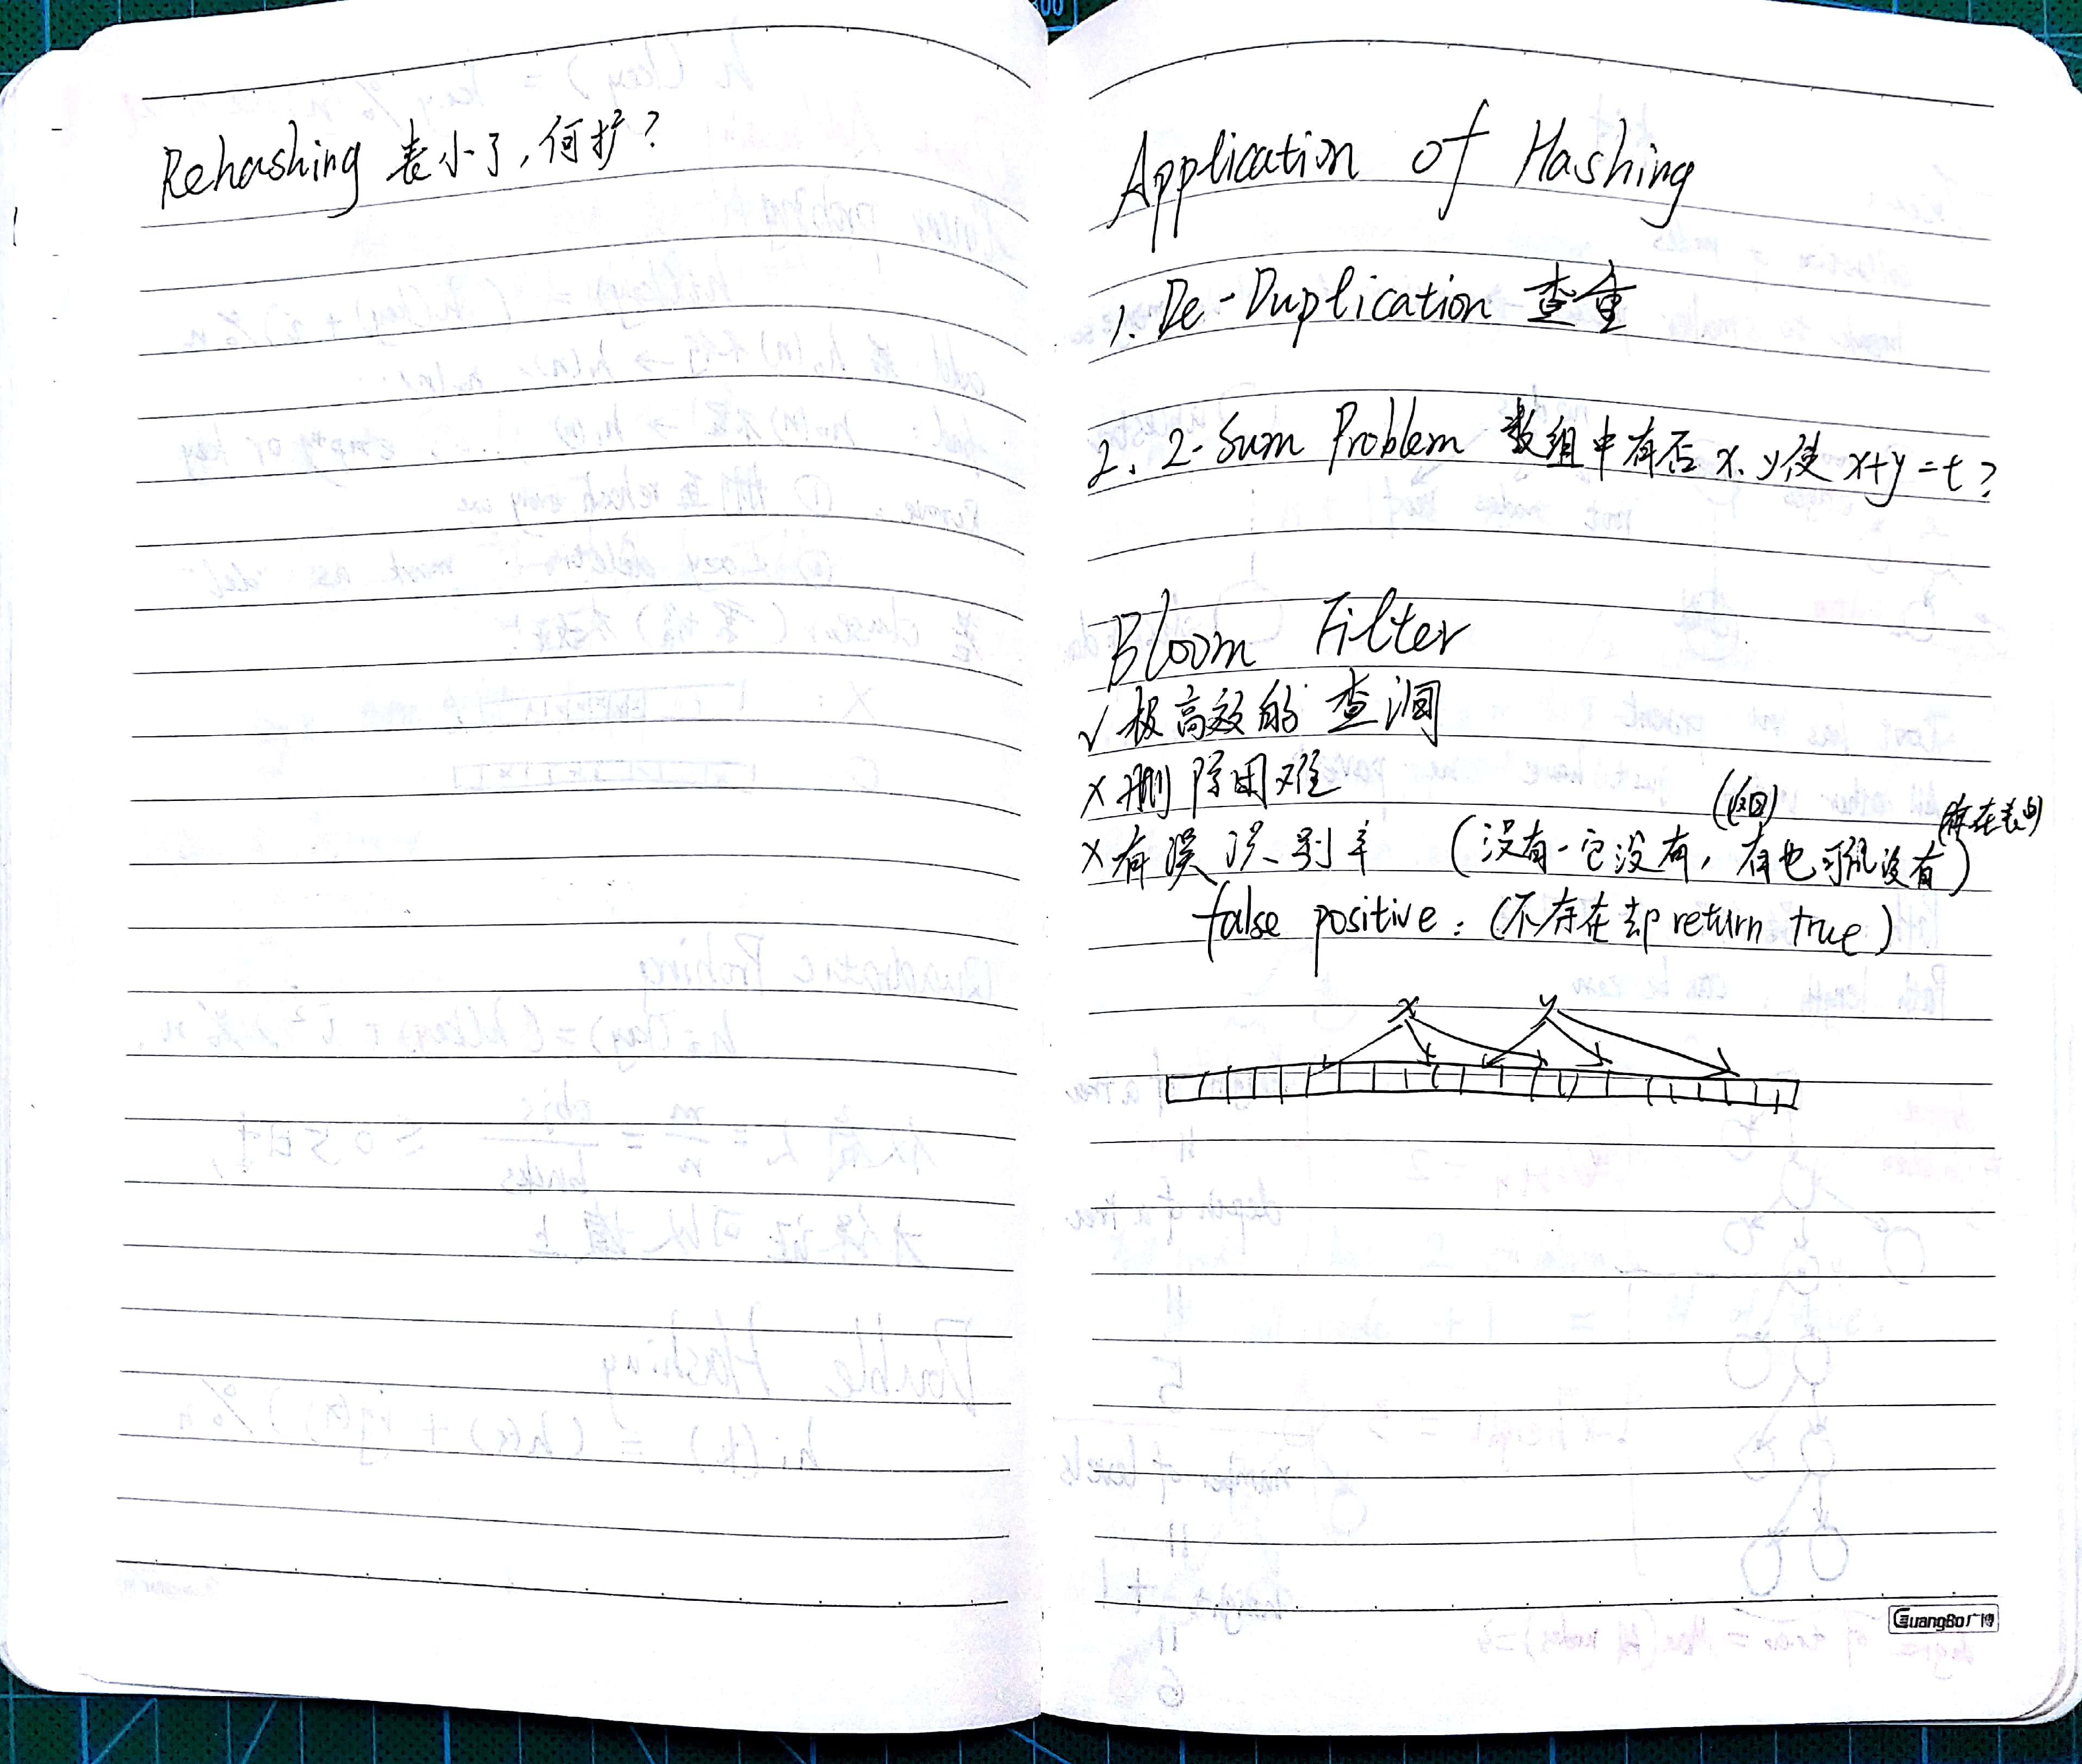 Rehashing 表小了,何扩?
Application of Hashing
1. De-Duplication 查重
2. 2-Sum Problem 数组中有否 x、y使 x+y=t?
Bloom Filter
√ 极高效的 查询
× 删除困难
(返回) (存在表中)
× 有误识别率 (没有一定没有, 有也可能没有)
false positive: (不存在却 return true)
x y
GuangBo广博